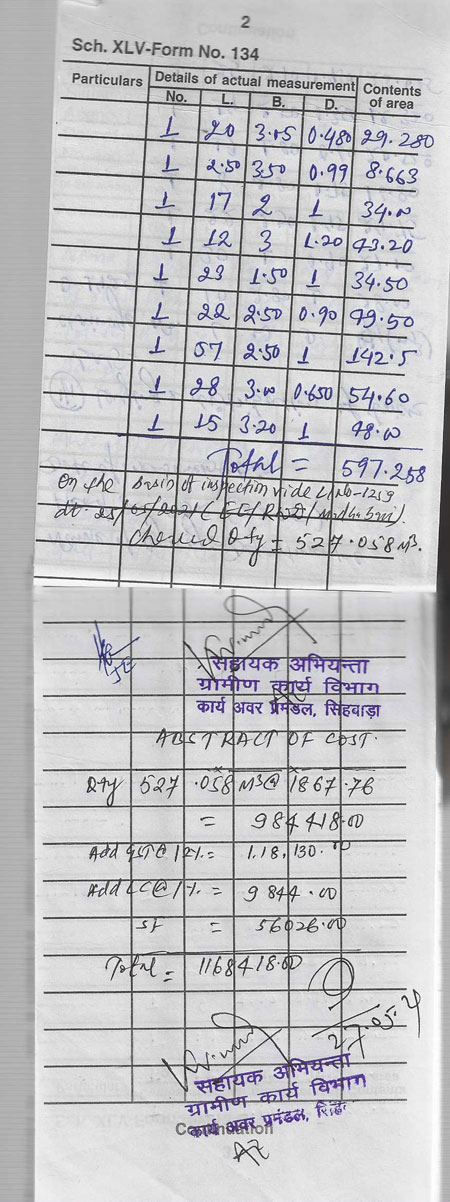 2
Sch. XLV-Form No. 134
Particulars Details of actual measurement Contents of area
No. L. B. D.
1 20 3.05 0.480 29.280
1 2.50 3.50 0.99 8.663
1 17 2 1 34.00
1 12 3 1.20 43.20
1 23 1.50 1 34.50
1 22 2.50 0.90 49.50
1 57 2.50 1 142.5
1 28 3.00 0.650 54.60
1 15 3.20 1 48.00
Total = 597.258
on the basis of inspection vide L/No-1259
dt. 25/05/2021 (EE/RWD/Madhubani).
Qty = 527.058 M³.
JE
सहायक अभियन्ता
ग्रामीण कार्य विभाग
कार्य अवर प्रमंडल, सिंहवाड़ा
ABSTRACT OF COST.
Qty 527.058 M³@ 1867.76
= 984418.00
Add GST@ 12%. = 1,18,130.00
Add LC@ 1%. = 9844.00
SF = 56026.00
Total = 1168418.00
27.05.21
सहायक अभियन्ता
ग्रामीण कार्य विभाग
कार्य अवर प्रमंडल,
Continuation